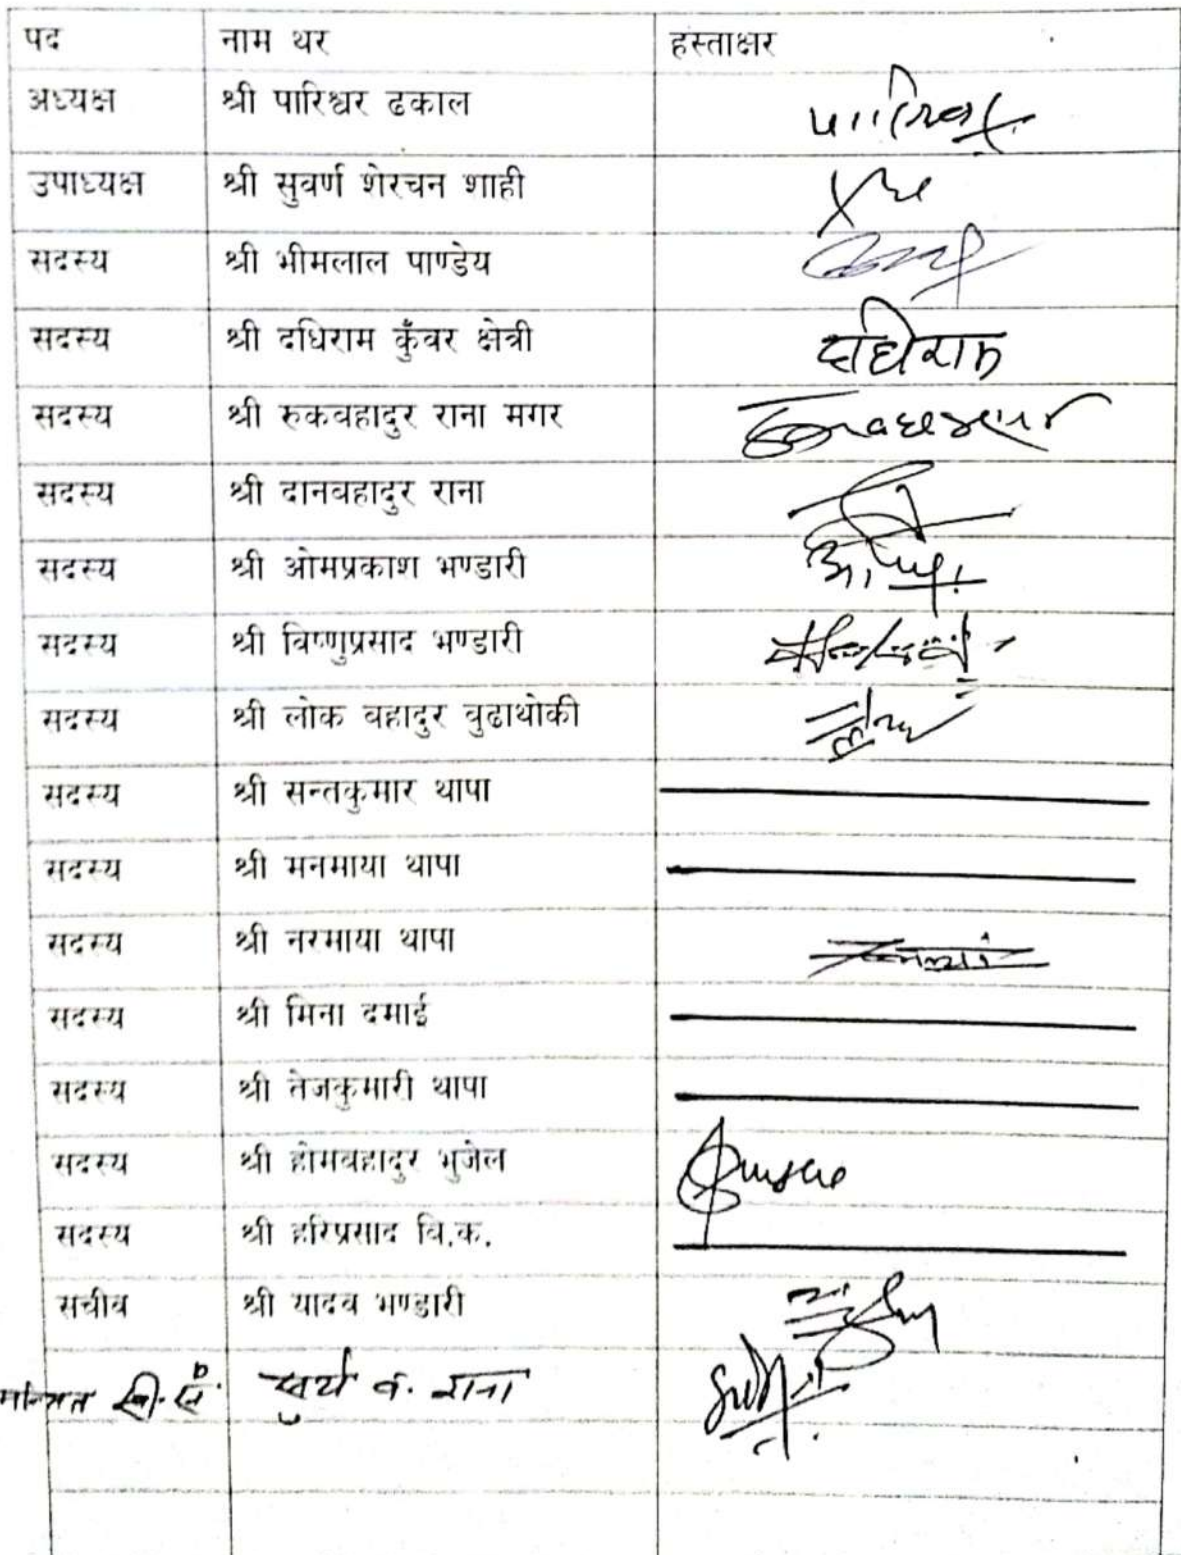 पद नाम थर हस्ताक्षर
अध्यक्ष श्री पारिश्वर ढकाल
उपाध्यक्ष श्री सुवर्ण शेरचन शाही
सदस्य श्री भीमलाल पाण्डेय
सदस्य श्री दधिराम कुँवर क्षेत्री दधिराम
सदस्य श्री रुकवहादुर राना मगर
सदस्य श्री दानवहादुर राना
सदस्य श्री ओमप्रकाश भण्डारी
सदस्य श्री विष्णुप्रसाद भण्डारी
सदस्य श्री लोक वहादुर वुढाथोकी
सदस्य श्री सन्तकुमार थापा
सदस्य श्री मनमाया थापा
सदस्य श्री नरमाया थापा
सदस्य श्री मिना दमाई
सदस्य श्री तेजकुमारी थापा
सदस्य श्री होमवहादुर भुजेल
सदस्य श्री हरिप्रसाद वि.क.
सचीव श्री यादव भण्डारी
सूर्य व. राना